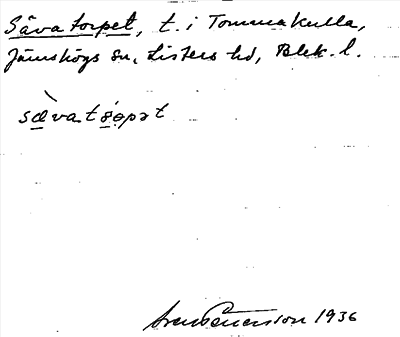 Sävatorpet, t. i Tommakulla,
Jämshögs sn, Listers hd, Blek. l.
sævatǫpət
Sven Benson 1936